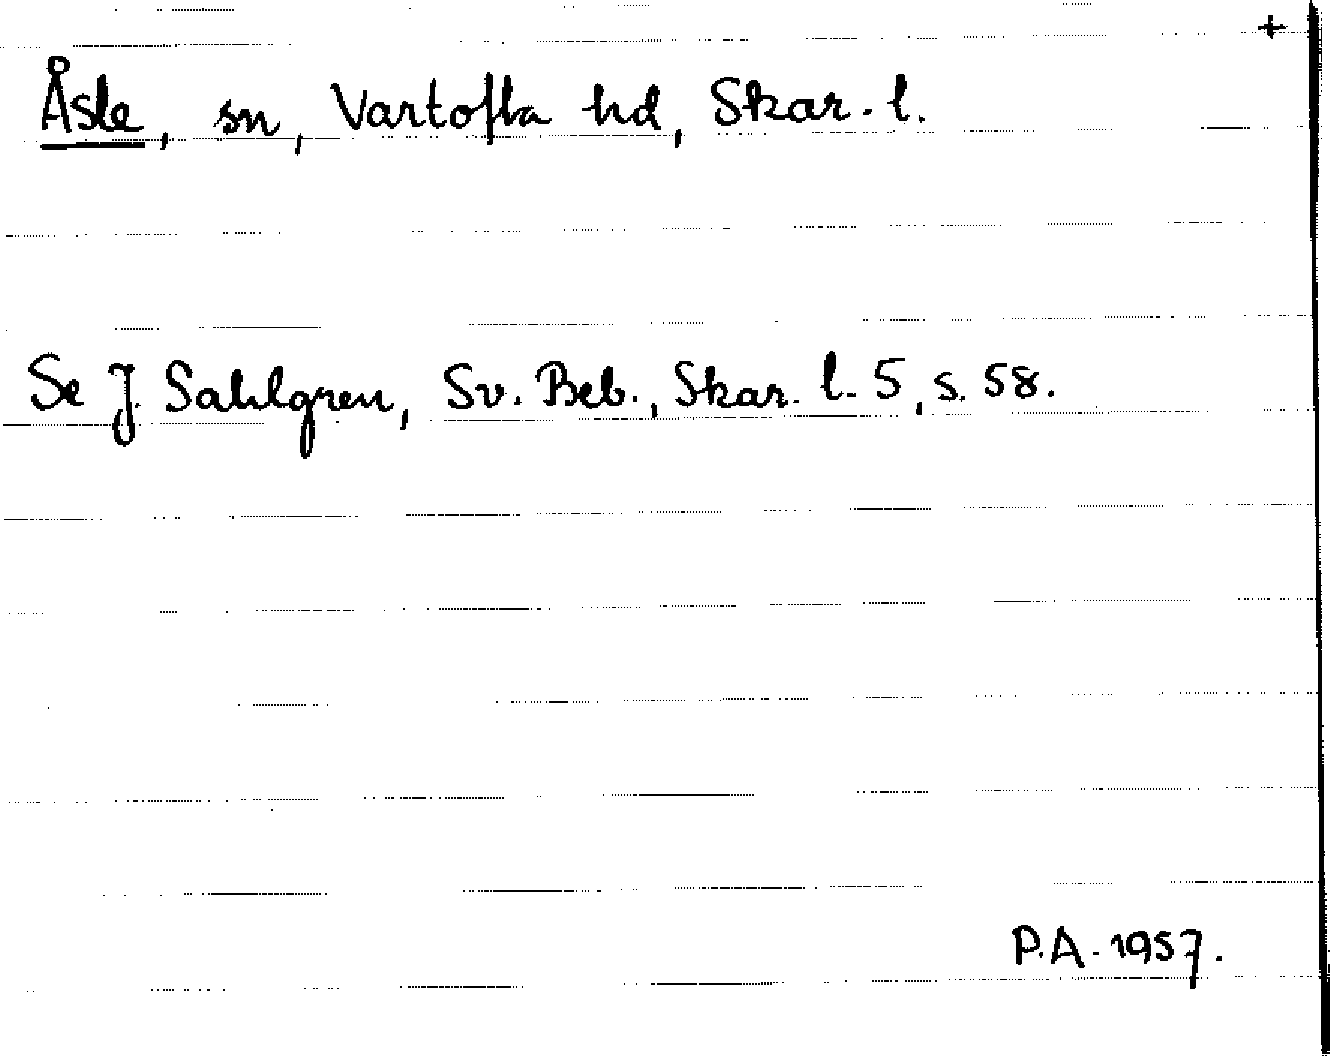 +
Åsle, sn, Vartofta hd, Skar. l.
Se J. Sahlgren, Sv. Beb., Skar. l. 5, s. 58.
P.A. 1957.